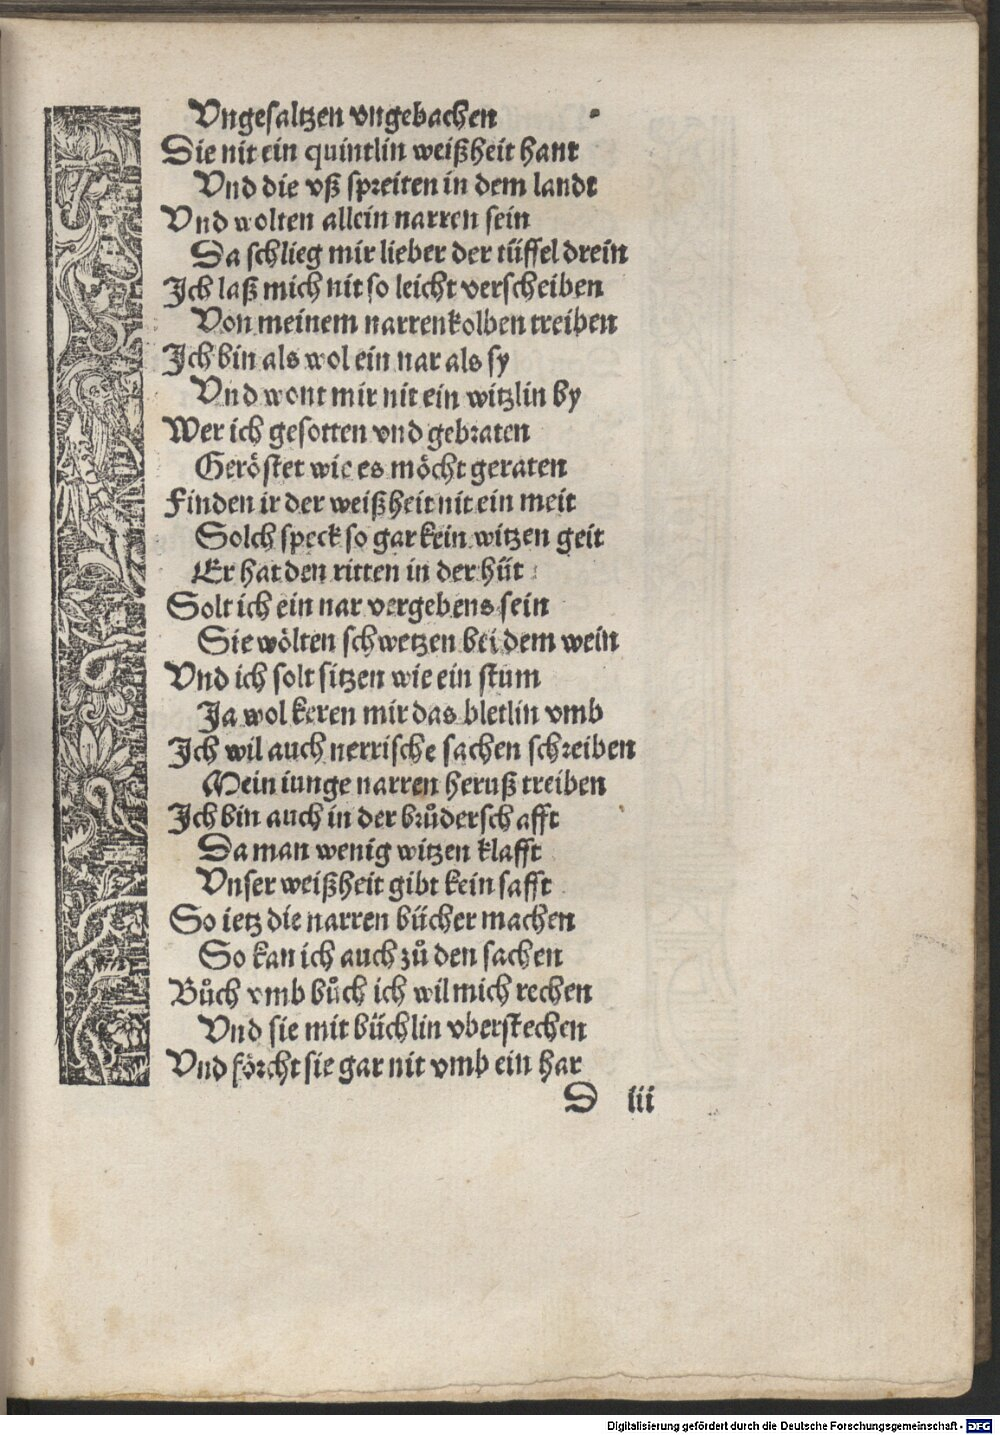 Vngesaltzen vngebachen
Die nit ein quintlin weißheit hant
Vnd die vß spreiten in dem landt
Vnd wolten allein narren sein
Da schlieg mir lieber der tüffel drein
Ich laß mich nit so leicht verscheiben
Von meinem narrenkolben treiben
Ich bin als wol ein nar als sy
Vnd wont mir nit ein witzlin by
Wer ich gesotten vnd gebraten
Geröstet wie es möcht geraten
Finden ir der weißheit nit ein meit
Solch speck so gar kein witzen geit
Er hat den ritten in der hüt
Solt ich ein nar vergebens sein
Sie wölten schwetzen bei dem wein
Vnd ich solt sitzen wie ein stum
Ja wol keren mir das bletlin vmb
Ich wil auch nerrische sachen schreiben
Mein iunge narren heruß treiben
Ich bin auch in der brůderschafft
Da man wenig witzen klafft
Vnser weißheit gibt kein safft
So ietz die narren bücher machen
So kan ich auch zů den sachen
Bůch vmb bůch ich wil mich rechen
Vnd sie mit büchlin vberstechen
Vnd förcht sie gar nit vmb ein har
D iii
Digitalisierung gefördert durch die Deutsche Forschungsgemeinschaft - DFG